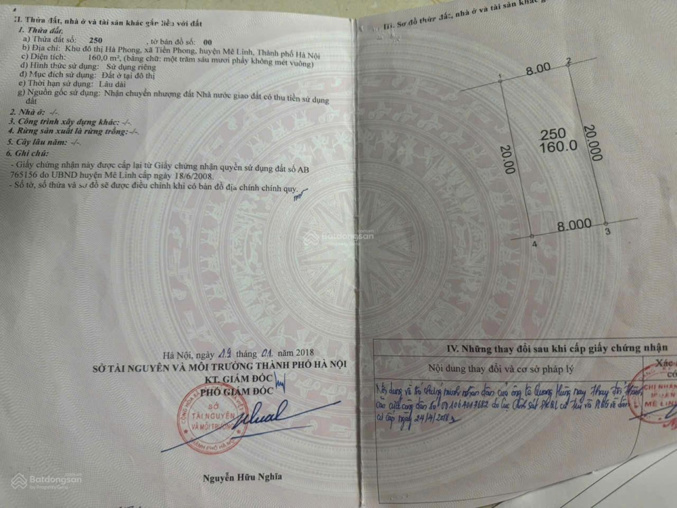 II. Thửa đất, nhà ở và tài sản khác gắn liền với đất
1. Thửa đất:
a) Thửa đất số: 250 , tờ bản đồ số: 00
b) Địa chỉ: Khu đô thị Hà Phong, xã Tiền Phong, huyện Mê Linh, Thành phố Hà Nội
c) Diện tích: 160,0 m², (bằng chữ: một trăm sáu mươi phẩy không mét vuông)
d) Hình thức sử dụng: Sử dụng riêng
đ) Mục đích sử dụng: Đất ở tại đô thị
e) Thời hạn sử dụng: Lâu dài
g) Nguồn gốc sử dụng: Nhận chuyển nhượng đất Nhà nước giao đất có thu tiền sử dụng
đất
2. Nhà ở: -/-
3. Công trình xây dựng khác: -/-
4. Rừng sản xuất là rừng trồng: -/-
5. Cây lâu năm: -/-
6. Ghi chú:
- Giấy chứng nhận này được cấp lại từ Giấy chứng nhận quyền sử dụng đất số AB
765156 do UBND huyện Mê Linh cấp ngày 18/6/2008.
- Số tờ, số thửa và sơ đồ sẽ được điều chỉnh khi có bản đồ địa chính chính quy.
Hà Nội, ngày 19 tháng 01 năm 2018
SỞ TÀI NGUYÊN VÀ MÔI TRƯỜNG THÀNH PHỐ HÀ NỘI
KT. GIÁM ĐỐC
PHÓ GIÁM ĐỐC
SỞ
TÀI NGUYÊN
VÀ MÔI TRƯỜNG
Nguyễn Hữu Nghĩa
Batdongsan
III. Sơ đồ thửa đất, nhà ở và tài sản khác
1
8.00
2
20.00
250
160.0
20.000
8.000
4
3
Batdongsan
IV. Những thay đổi sau khi cấp giấy chứng nhận
Nội dung thay đổi và cơ sở pháp lý
Xác
CHI NHÁNH
MÊ LINH
cấp ngày 24/4/2018
Batdongsan